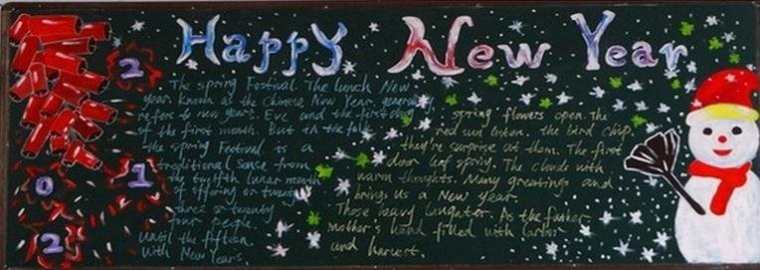 Happy New Year
2
0
1
2
The Spring Festival. The lunch New
year known as the Chinese New Year generally
refers to new years. Eve and the first day
of the first month. But in the folk
the spring Festival is a
traditional sense from
the twelfth Lunar month
of offering or twenty
three or twenty
four people.
Until the fifteen
With New Years.
spring flowers open. The
red sun listen. the bird chip
they're surprise at them. The first
door leaf spring. The clouds with
warm thoughts. Many greetings and
brings us a New year.
Those heavy laughter. As the
mother's hand filled with labor
and harvest.